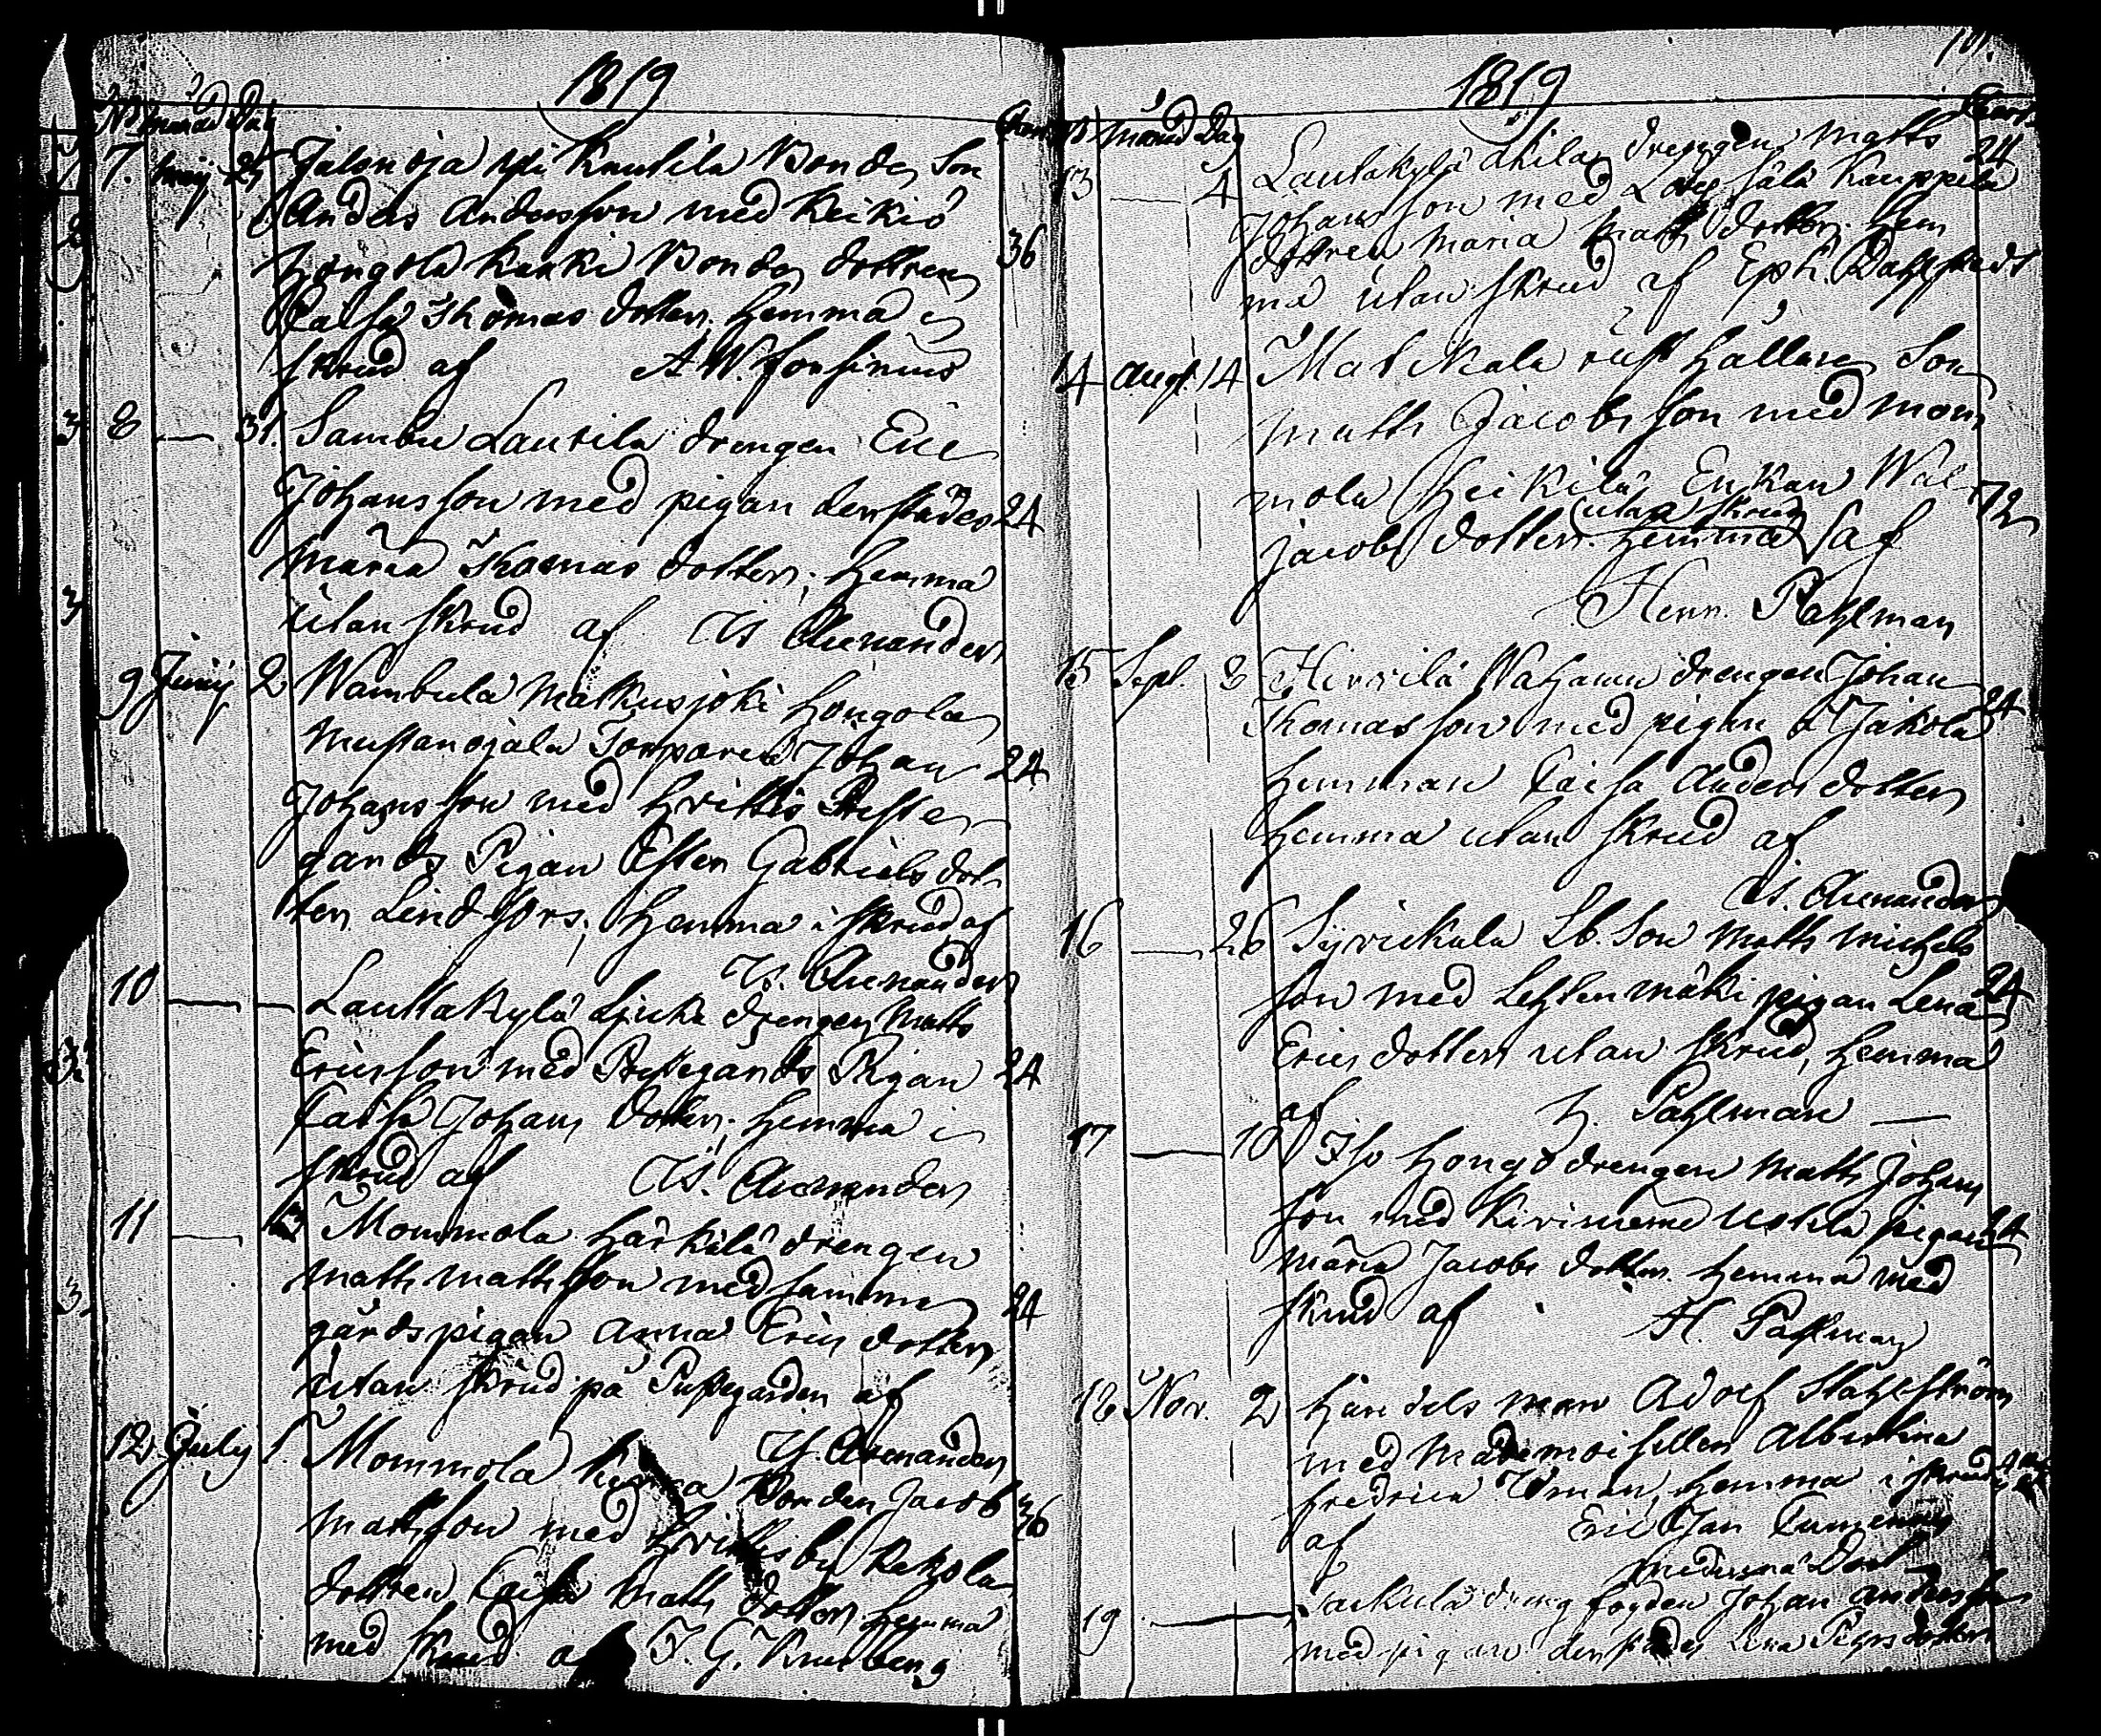 1819
No månad Dag
7. Maij 25 Jalonoja Yli Knutila Bondes Son
Anders Andersson med Keikiö
Hongola Kauki Bonde dottren 36
Caisa Thomas dotter. Hemma i
skrud af A W. Forsinius
8 — 31. Sambu Laurila drengen Eric
Johansson med pigan derstädes 24
Maria Thomas dotter; Hemma
utan skrud af Is. Alcenander
9 Junij 2 Wambula Matkusjoki Hongola
Mustanojala Torparen Johan 24
Johansson med Hvittis Preste
gårds Pigan Ester Gabriels dot
ter Lindfors; Hemma i skrud af
Is. Alcenander
10 — — Lauttakylä Ljuka drengen Matts
Ericsson med Prestegårds Pigan 24
Caisa Johans dotter; Hemma i
skrud af Is. Alcenander
11 — Mommola Härkälä drengen
Matts Mattsson med samma 24
gårds pigan Anna Erics dotter
utan skrud på Prestgården af
Is. Alcenander
12. July 1. Mommola Bonden Jacob 36
Mattsson med Hvittis by Kekola
dottren Caisa Matts dotter Hemma
med skrud af J. G. Kreiberg
1819
No månad Dag
13 — 4 Lautakylä drengen Matts 24
Johansson med Loysälä Kauppila
dottren Maria Matts dotter. Hem
ma utan skrud af Eph. Dahlstedt
14 Aug. 14 Matikala rusthållare Son
Matts Jacobsson med Mom
mola Heikilä Enkan Wal 72
Jacobs dotter. Hemma (utan skrud) af
Henr. Pahlman
15 Sept 8 Hirvilä Wahanu drengen Johan
Thomasson med pigan å Jakola 24
Hemman Caisa Anders dotter
Hemma utan skrud af
Is. Alcenander
16 — 26 Syvickala Lb. Son Matts Michels
son med Lehtenmäki pigan Lena 24
Erics dotter utan skrud, Hemma
af H. Pahlman —
17 — 10 Iso Hongo drengen Matts Johans
son med Kiviniemi Uotila pigan 24
Maria Jacobs dotter. Hemma med
skrud af H. Pahlman
18 Nov. 2 Handelsman Adolf Stahlström
med Mademoisellen Albertina
Fredrica Öman, Hemma i skrud
af Eric Jan
Medicinæ Doct
19 — Saikula drengfogden Johan Andersson
med pigan derstädes Lisa Pehrs dotter